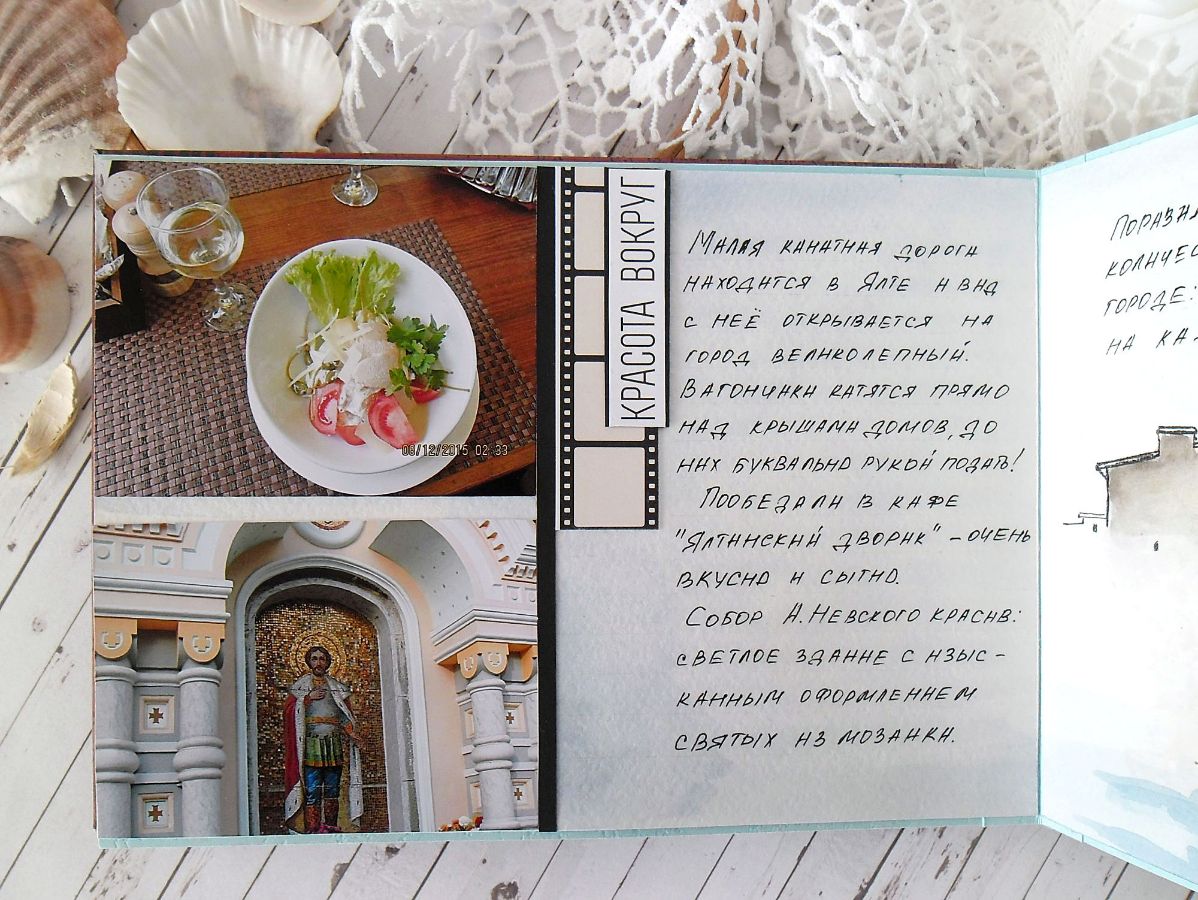 08/12/2015 02:33
КРАСОТА ВОКРУГ
Малая канатная дорога
находится в Ялте и вид
с неё открывается на
город великолепный.
Вагончики катятся прямо
над крышами домов, до
них буквально рукой подать!
Пообедали в кафе
"Ялтинский дворик" - очень
вкусно и сытно.
Собор А. Невского красив:
светлое здание с изыс-
канным оформлением
святых из мозаики.
городе.
на